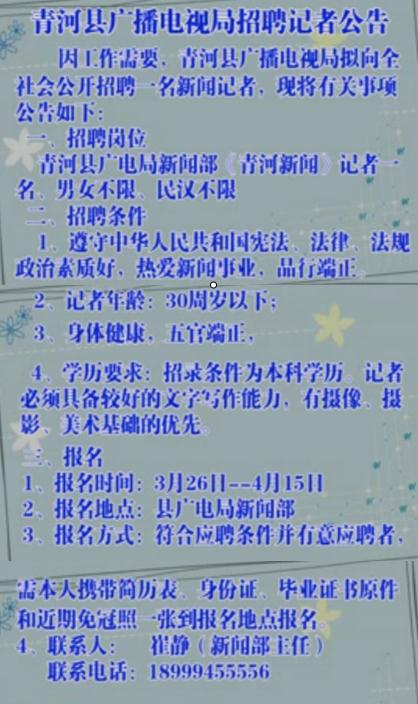 青河县广播电视局招聘记者公告
因工作需要，青河县广播电视局拟向全
社会公开招聘一名新闻记者，现将有关事项
公告如下：
一、招聘岗位
青河县广电局新闻部《青河新闻》记者一
名、男女不限、民汉不限
二、招聘条件
1、遵守中华人民共和国宪法、法律、法规
政治素质好，热爱新闻事业，品行端正。
2、记者年龄：30周岁以下；
3、身体健康，五官端正，
4、学历要求：招录条件为本科学历。记者
必须具备较好的文字写作能力，有摄像、摄
影、美术基础的优先。
三、报名
1、报名时间：3月26日--4月15日
2、报名地点：县广电局新闻部
3、报名方式：符合应聘条件并有意应聘者，
需本人携带简历表、身份证、毕业证书原件
和近期免冠照一张到报名地点报名。
4、联系人： 崔静（新闻部主任）
联系电话：18999455556